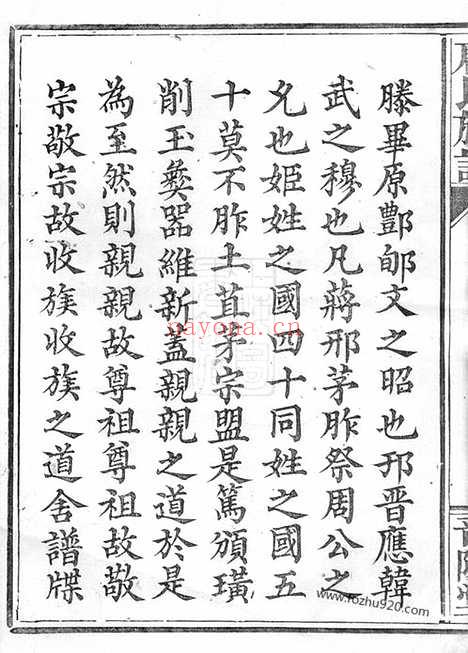 滕畢原酆郇文之昭也邘晉應韓
武之穆也凡蔣邢茅胙祭周公之
允也姬姓之國四十同姓之國五
十莫不胙土苴茅宗盟是篤頒璜
削玉彜器維新蓋親親之道於是
為至然則親親故尊祖尊祖故敬
宗敬宗故收族收族之道舍譜牒
nayona.cn
www.fozhu920.com